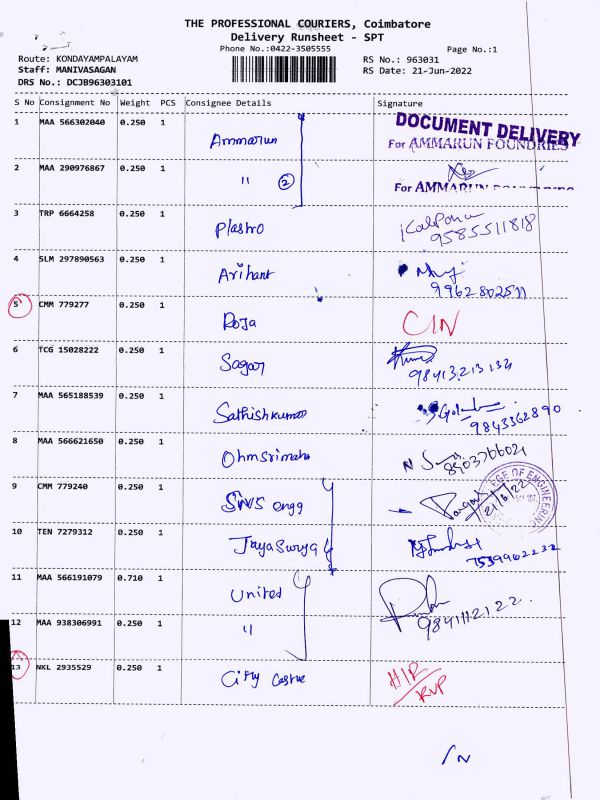 THE PROFESSIONAL COURIERS, Coimbatore
Delivery Runsheet - SPT
Phone No.:0422-3505555
Page No.:1
Route: KONDAYAMPALAYAM
RS No.: 963031
Staff: MANIVASAGAN
RS Date: 21-Jun-2022
DRS No.: DCJB96303101
S No Consignment No Weight PCS Consignee Details Signature
1 MAA 566302040 0.250 1 Ammarun DOCUMENT DELIVERY
For AMMARUN FOUNDRIES
2 MAA 290976867 0.250 1 " 2
For AMMARUN FOUNDRIES
3 TRP 6664258 0.250 1 Plastro Kalpana
9585511818
4 SLM 297890563 0.250 1 Arihant
9962802511
5 CMM 779277 0.250 1 Roja CIN
6 TCG 15028222 0.250 1 Sagar
98413213132
7 MAA 565188539 0.250 1 Sathishkumar
9843362890
8 MAA 566621650 0.250 1 Ohmsrimaha
8903766021
9 CMM 779240 0.250 1 SNS engg 21/6/22
OF ENGINEERING
10 TEN 7279312 0.250 1 Jayasurya
7539962232
11 MAA 566191079 0.710 1 United
12 MAA 938306991 0.250 1 " 9841112122
13 NKL 2935529 0.250 1 City Castle HIR/RVP
IN